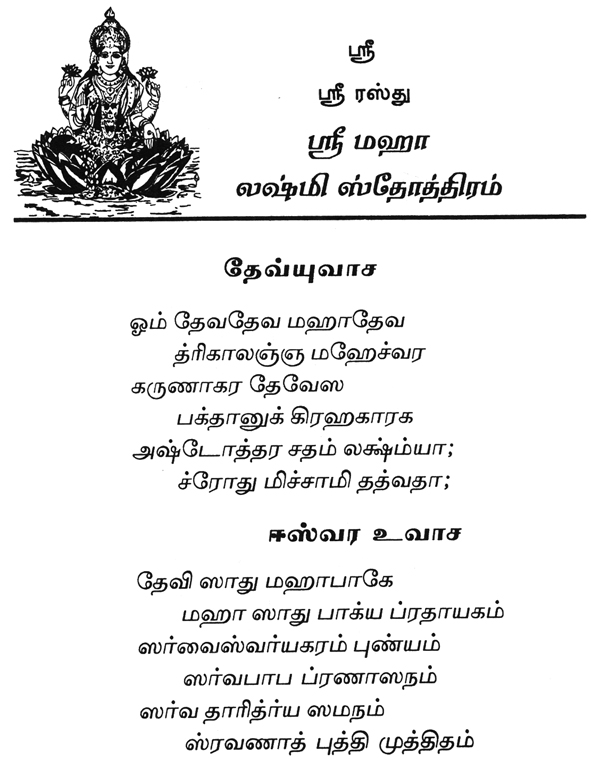 ஸ்ரீ
ஸ்ரீ ரஸ்து
ஸ்ரீ மஹா
லஷ்மி ஸ்தோத்திரம்
தேவ்யுவாச
ஓம் தேவதேவ மஹாதேவ
த்ரிகாலஞ்ஞ மஹேச்வர
கருணாகர தேவேஸ
பக்தானுக் கிரஹகாரக
அஷ்டோத்தர சதம் லக்ஷ்ம்யா;
ச்ரோது மிச்சாமி தத்வதா;
ஈஸ்வர உவாச
தேவி ஸாது மஹாபாகே
மஹா ஸாது பாக்ய ப்ரதாயகம்
ஸர்வைஸ்வர்யகரம் புண்யம்
ஸர்வபாப ப்ரணாஸநம்
ஸர்வ தாரித்ர்ய ஸமநம்
ஸ்ரவணாத் புத்தி முத்திதம்